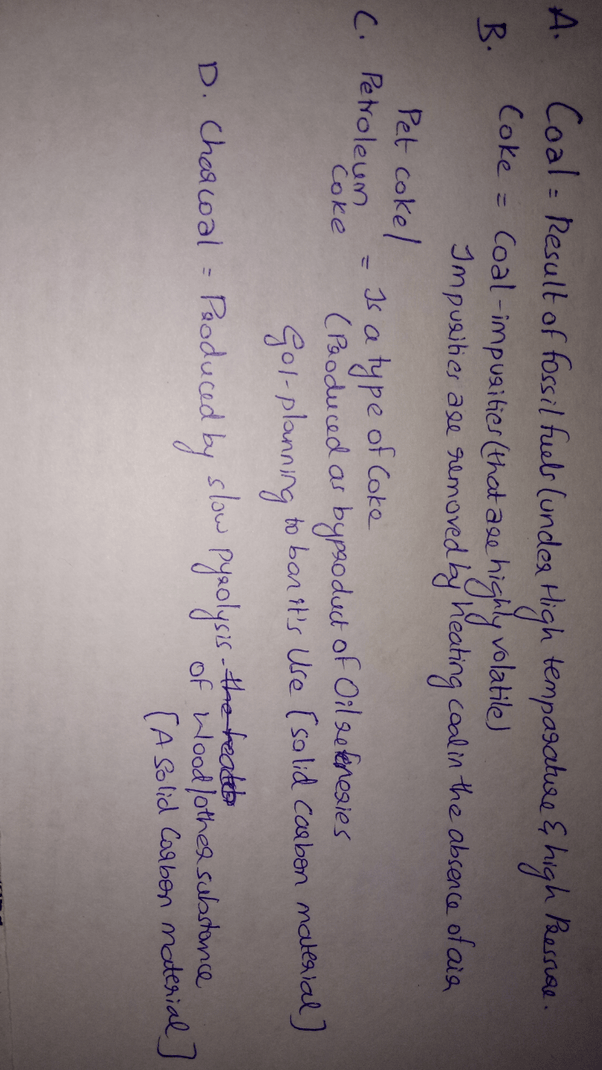 A. Coal = Result of fossil fuels (under High temparature & high Pressure.
B. Coke = Coal - impurities (that are highly volatile)
Impurities are removed by heating coal in the absence of air
Pet coke/
C. Petroleum = Is a type of Coke
Coke (Produced as byproduct of Oil refineries
GoI - planning to ban it's Use [solid carbon material]
D. Charcoal = Produced by slow pyrolysis - the
of wood/other substance
[A Solid Carbon material]